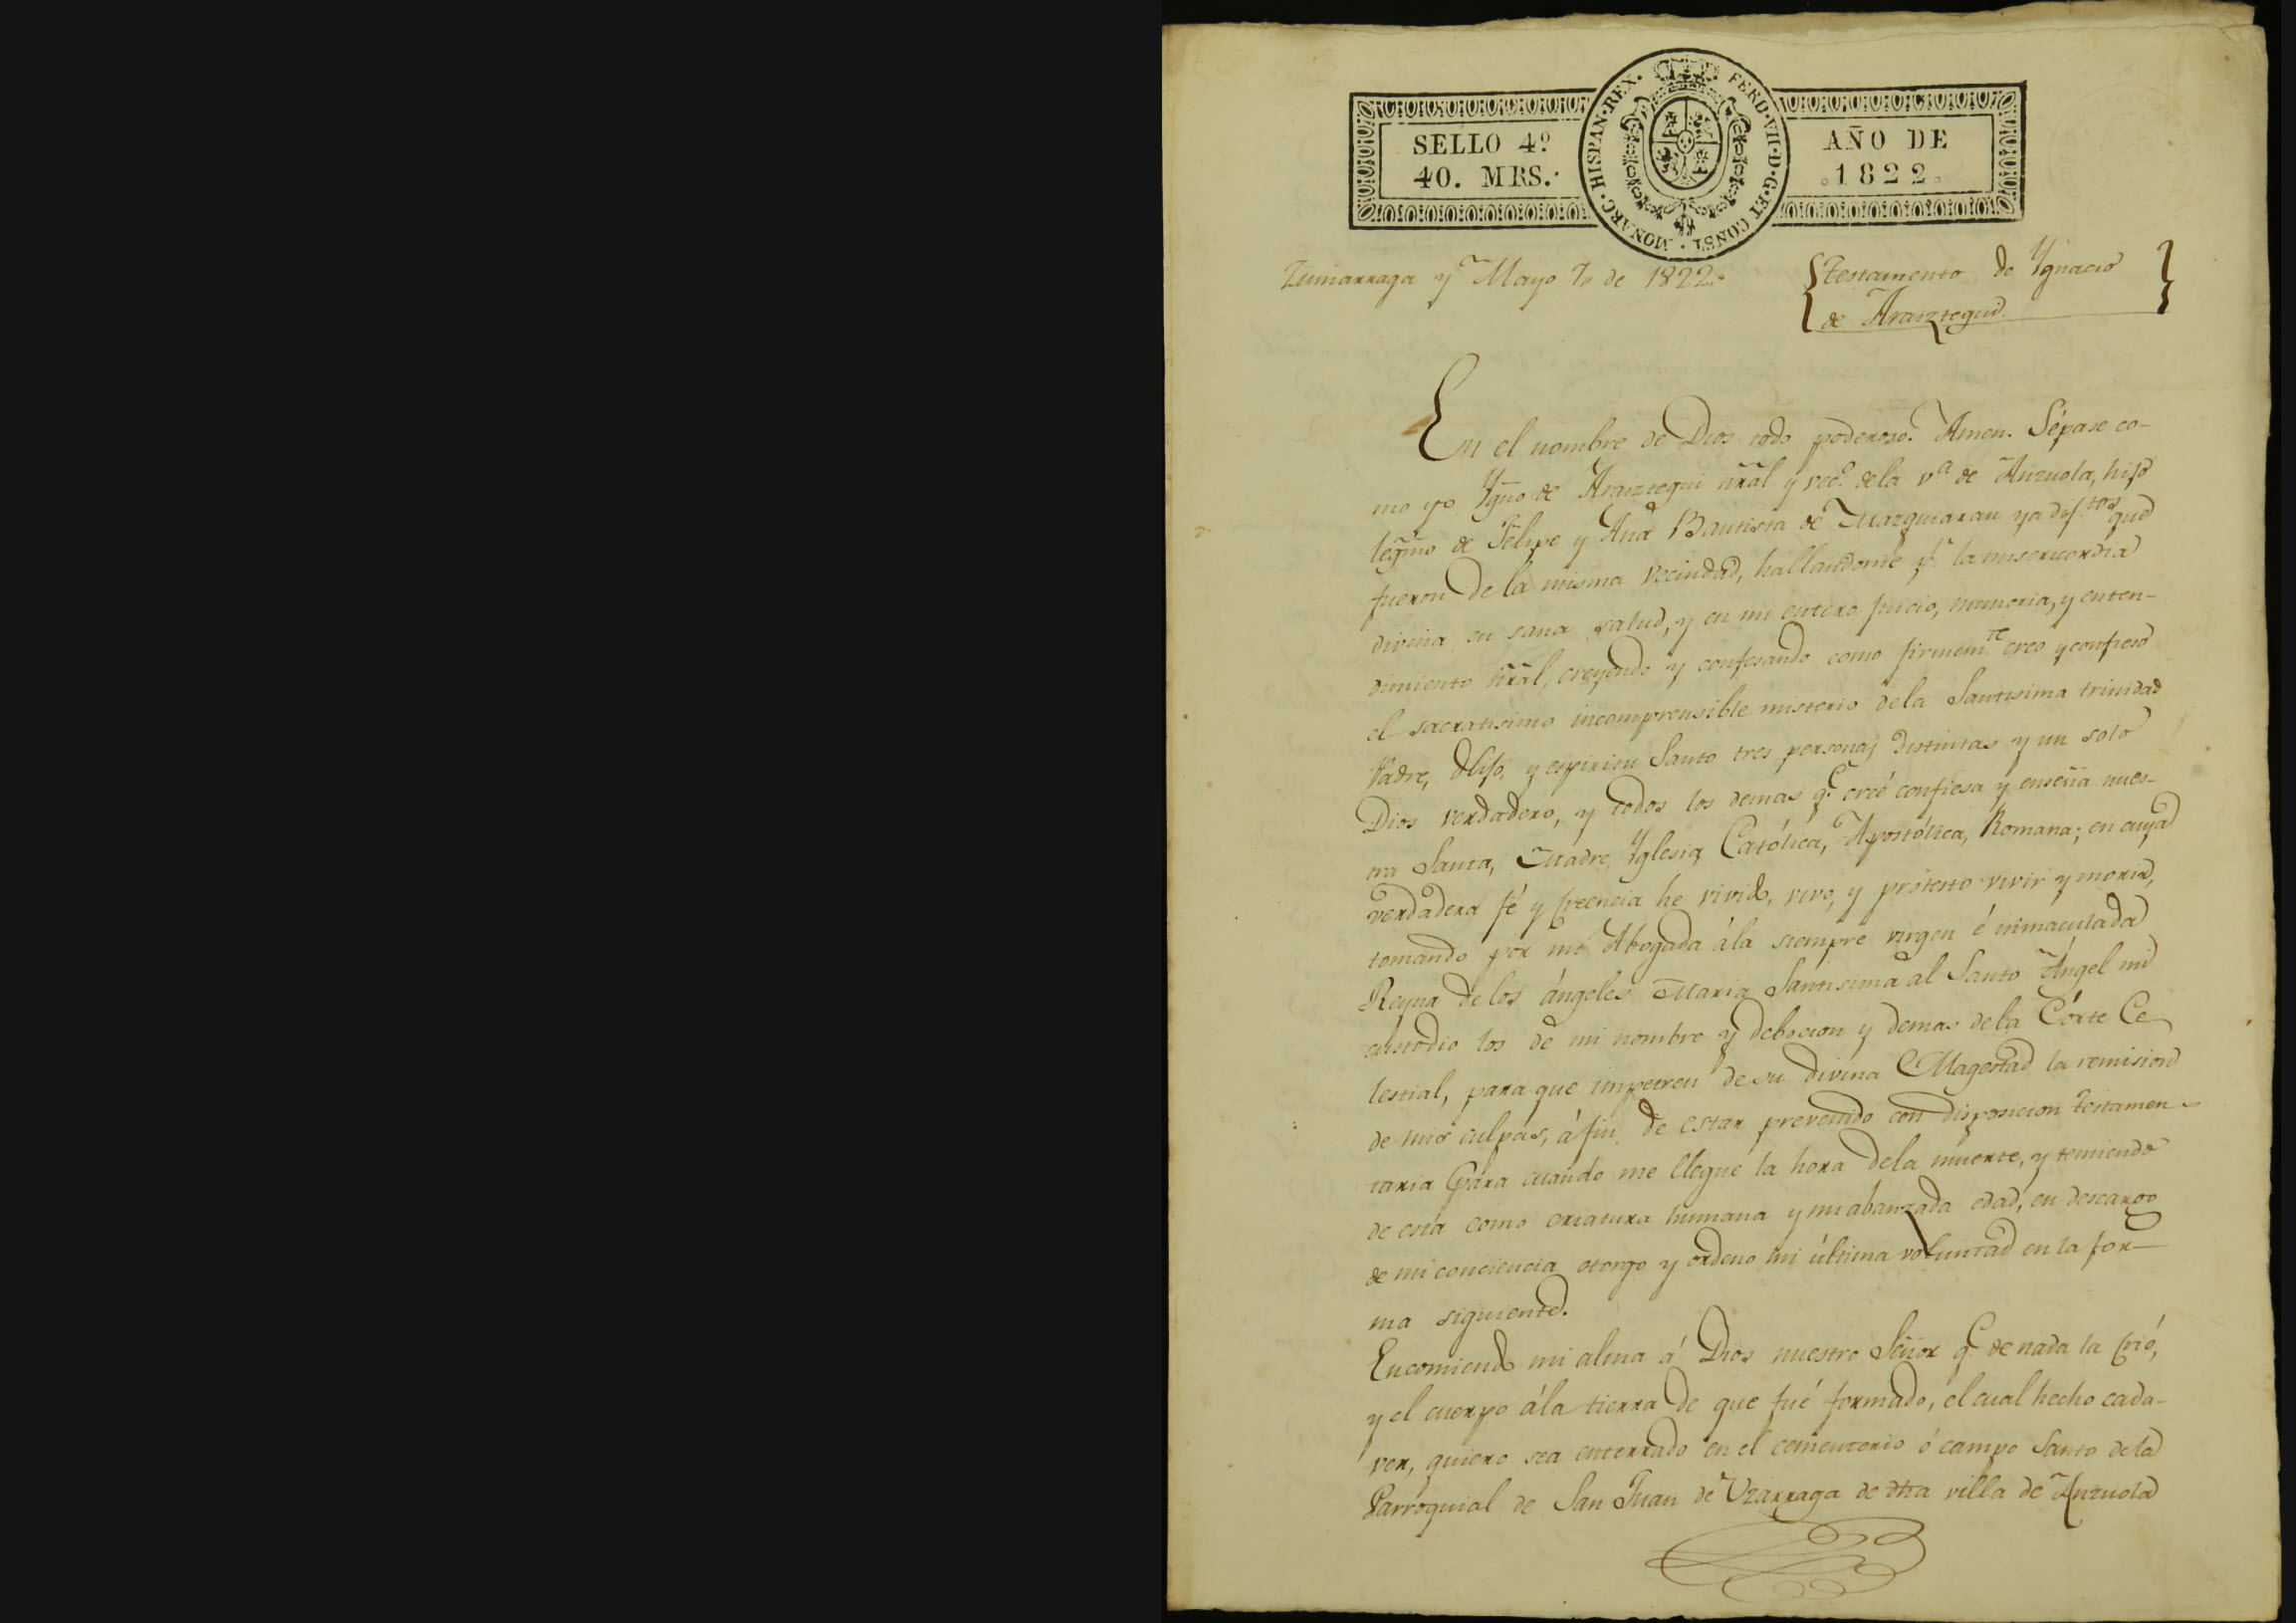 SELLO 4º
40. MRS.
HISPAN. REX. FERD. VII. D. G. ET CONST. MONARC.
AÑO DE
1822.
Zumarraga y Mayo 7, de 1822.
Testamento de Ygnacio
de Araiztegui
En el nombre de Dios todo poderoso. Amen. Sépase co-
mo yo Ygno de Araiztegui nral y vecº. de la vª de Anzuola, hijo
legmo de Felipe y Ana Bautista de Mazguiaran ya diftos que
fueron de la misma vecindad, hallandome pr. la misericordia
divina en sana salud, y en mi entero juicio, memoria, y enten-
dimiento nral, creyendo y confesando como firmemte creo y confieso
el sacratisimo incomprensible misterio dela Santisima trinidad
Padre, Hijo, y espiritu Santo tres personas distintas y un solo
Dios verdadero, y todos los demas q.e creé confiesa y enseña nues-
tra Santa, Madre, Yglesia, Católica, Apostólica, Romana; en cuya
verdadera fé y creencia he vivido, vivo, y protesto vivir y morir,
tomando por mi Abogada ála siempre virgen é inmaculada
Reyna de los ángeles Maria Santisima al Santo Ángel mi
custodio los de mi nombre y debocion y demas dela Córte Ce
lestial, para que impetren de su divina Magestad la remision
de mis culpas, áfin de estar prevenido con disposicion testamen-
taria para cuando me llegue la hora dela muerte, y temiendo
de esta como criatura humana y mi abanzada edad, en descargo
de mi conciencia otorgo y ordeno mi última voluntad en la for-
ma siguiente.
Encomiendo mi alma á Dios nuestro Señor q.e de nada la crió,
y el cuerpo ála tierra de que fué formado, el cual hecho cada-
ver, quiero sea enterrado en el cementerio ó campo Santo dela
Parroquial de San Juan de Uzarraga de dha villa de Anzuola